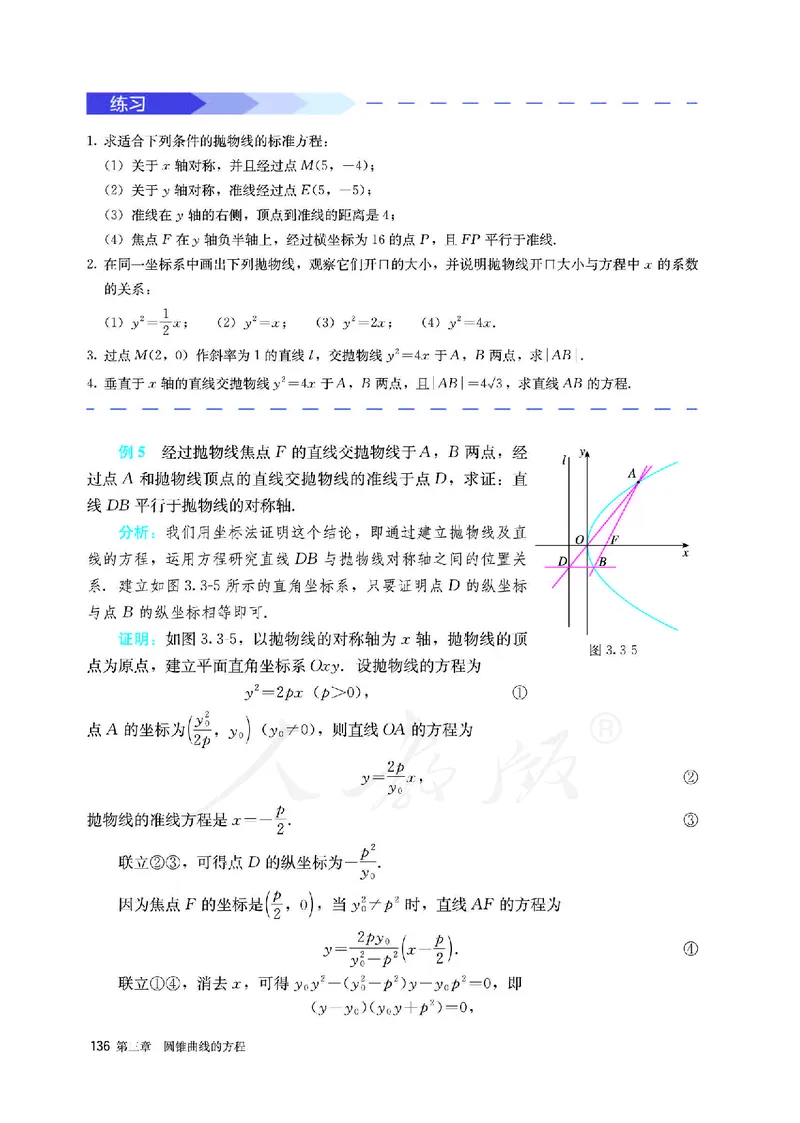 练习
1. 求适合下列条件的抛物线的标准方程：
(1) 关于 x 轴对称，并且经过点 M(5，-4)；
(2) 关于 y 轴对称，准线经过点 E(5，-5)；
(3) 准线在 y 轴的右侧，顶点到准线的距离是 4；
(4) 焦点 F 在 y 轴负半轴上，经过横坐标为 16 的点 P，且 FP 平行于准线.
2. 在同一坐标系中画出下列抛物线，观察它们开口的大小，并说明抛物线开口大小与方程中 x 的系数
的关系：
(1) y²=1/2x； (2) y²=x； (3) y²=2x； (4) y²=4x.
3. 过点 M(2，0) 作斜率为 1 的直线 l，交抛物线 y²=4x 于 A，B 两点，求|AB|.
4. 垂直于 x 轴的直线交抛物线 y²=4x 于 A，B 两点，且|AB|=4√3，求直线 AB 的方程.
例 5 经过抛物线焦点 F 的直线交抛物线于 A，B 两点，经
过点 A 和抛物线顶点的直线交抛物线的准线于点 D，求证：直
线 DB 平行于抛物线的对称轴.
分析：我们用坐标法证明这个结论，即通过建立抛物线及直
线的方程，运用方程研究直线 DB 与抛物线对称轴之间的位置关
系. 建立如图 3.3-5 所示的直角坐标系，只要证明点 D 的纵坐标
与点 B 的纵坐标相等即可.
l y
A
O F
x
D B
图 3.3-5
证明：如图 3.3-5，以抛物线的对称轴为 x 轴，抛物线的顶
点为原点，建立平面直角坐标系 Oxy. 设抛物线的方程为
y²=2px (p>0)， ①
点 A 的坐标为(y₀²/2p，y₀) (y₀≠0)，则直线 OA 的方程为
y=2p/y₀ x， ②
抛物线的准线方程是 x=-p/2. ③
联立②③，可得点 D 的纵坐标为-p²/y₀.
因为焦点 F 的坐标是(p/2，0)，当 y₀²≠p² 时，直线 AF 的方程为
y=2py₀/(y₀²-p²)(x-p/2). ④
联立①④，消去 x，可得 y₀y²-(y₀²-p²)y-y₀p²=0，即
(y-y₀)(y₀y+p²)=0，
136 第三章 圆锥曲线的方程
人教版®